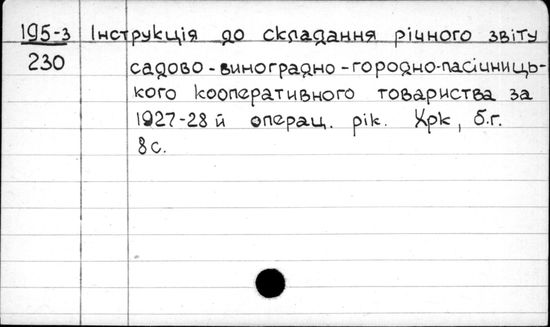 195-з Інструкція до складання річного звіту
230 садово-виноградно-городно-пасічниць-
кого кооперативного товариства за
1927-28й операц. рік. Хрк, б.г.
8с.